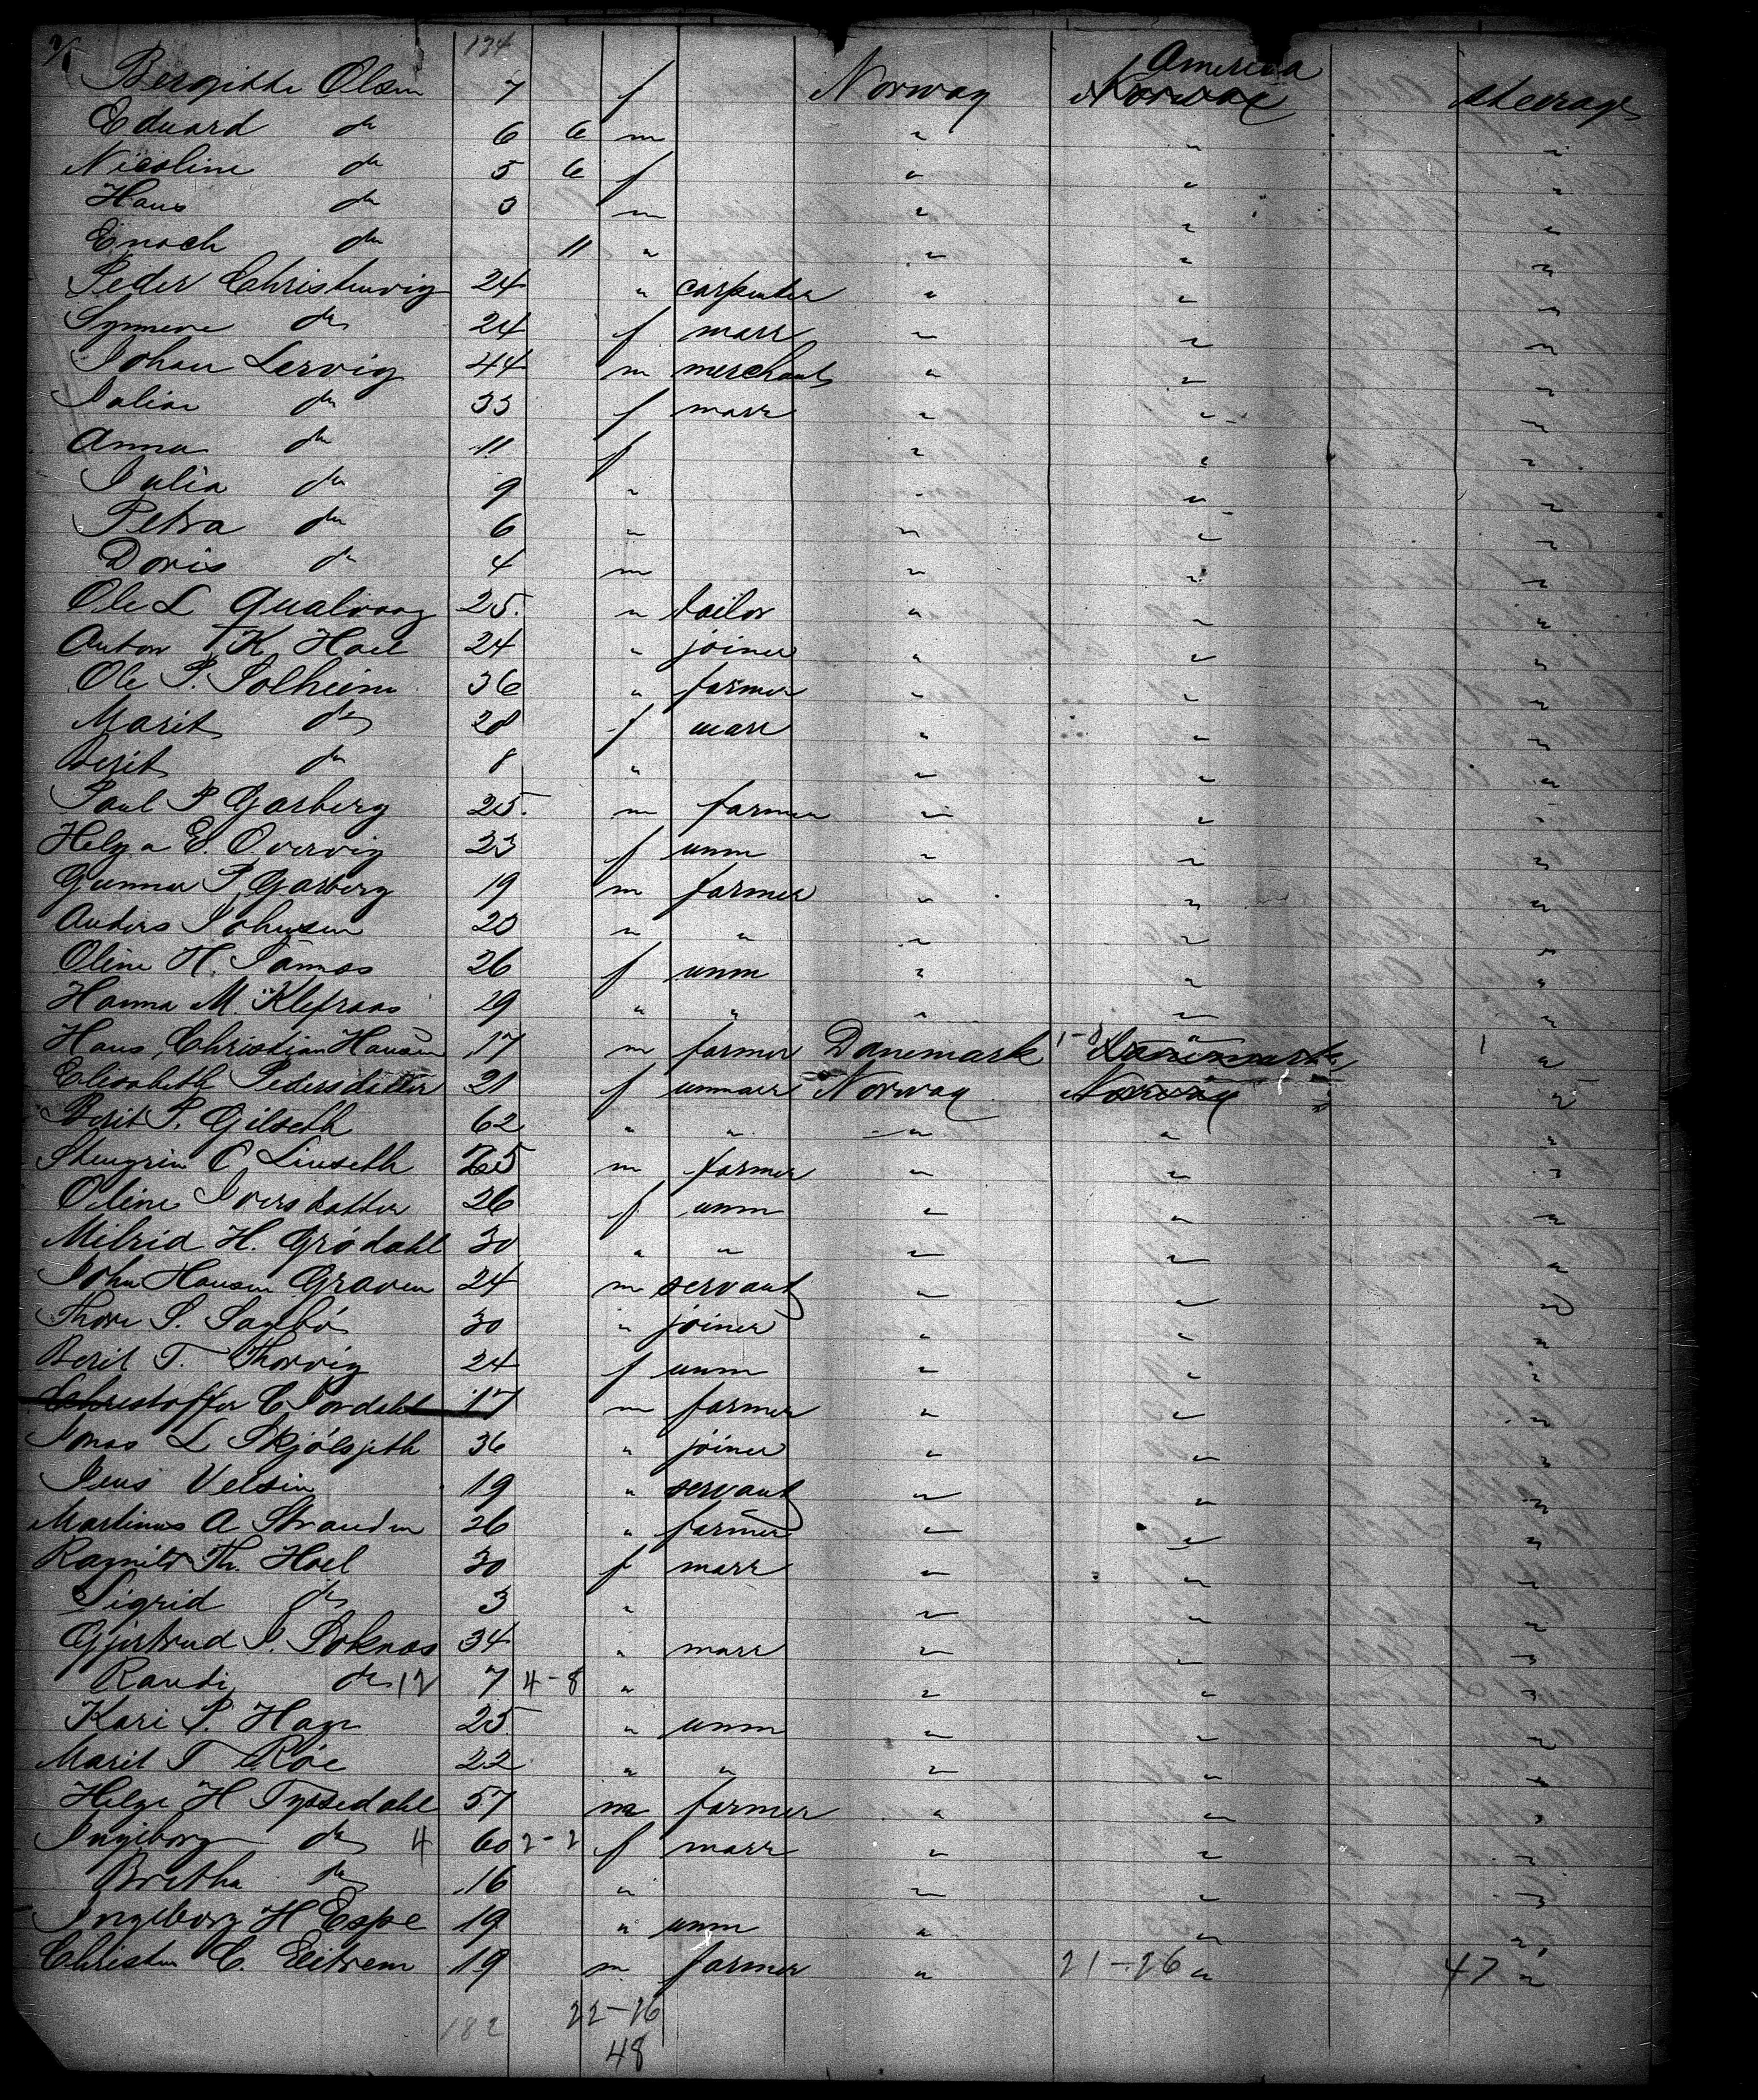 134
America
Bergitte Olsen 7 f Norway Norway steerage
Eduard do 6 6 m " " "
Nicoline do 5 6 f " " "
Hans do 3 m " " "
Enoch do 11 " " " "
Peder Christenvig 24 " carpenter " " "
Synneve do 24 f marr " " "
Johan Lervig 44 m merchant " " "
Juliar do 33 f marr " " "
Anna do 11 f " " "
Julia do 9 " " " "
Petra do 6 " " " "
Doris do 4 m " " "
Ole L Qualvaag 25. " tailor " " "
Anton K Hoel 24 " joiner " " "
Ole P. Solheim 36 " farmer " " "
Marit do 28 f marr " " "
Berit do 8 " " " "
Paul P Garberg 25. m farmer " " "
Helga E. Overvig 23 f unm " " "
Gunnar P. Garberg 19 m farmer " " "
Anders Johnsen 20 " " " " "
Oline H. Tamnas 26 f unm " " "
Hanna M. Klefraas 29 " " " " "
Hans Christian Hansen 17 m farmer Danemark 1- Danemark 1 "
Elisabeth Pedersdatter 21 f unmarr Norway Norway "
Berit P. Gilseth 62 " " " " "
Stengrim C Linseth 25 m farmer " " "
Oline Iversdatter 26 f unm " " "
Milrid H. Grödahl 30 " " " " "
John Hansen Graven 24 m servant " " "
Thore S. Sagbö 30 " joiner " " "
Berit T. Thorvig 24 f unm " " "
Christoffer C Jordahl 17 m farmer " " "
Jonas L Skjölsjeth 36 " joiner " " "
Jens Velsin 19 " servant " " "
Martinus A Stranden 26 " farmer " " "
Ragnild Th. Hoel 30 f marr " " "
Sigrid do 3 " " " "
Gjertrud I. Soknas 34 " marr " " "
Randi do 12 7 4-8 " " " "
Kari P. Hage 25 " unm " " "
Marit T Röe 22 " " " " "
Helge H Tyssedahl 57 m farmer " " "
Ingeborg do 4 60 2-2 f marr " " "
Bretha do 16 " " " "
Ingeborg H Espe 19 " unm " " "
Christen C. Eitrem 19 m farmer " 21-26 " 47 "
182 22-26
48